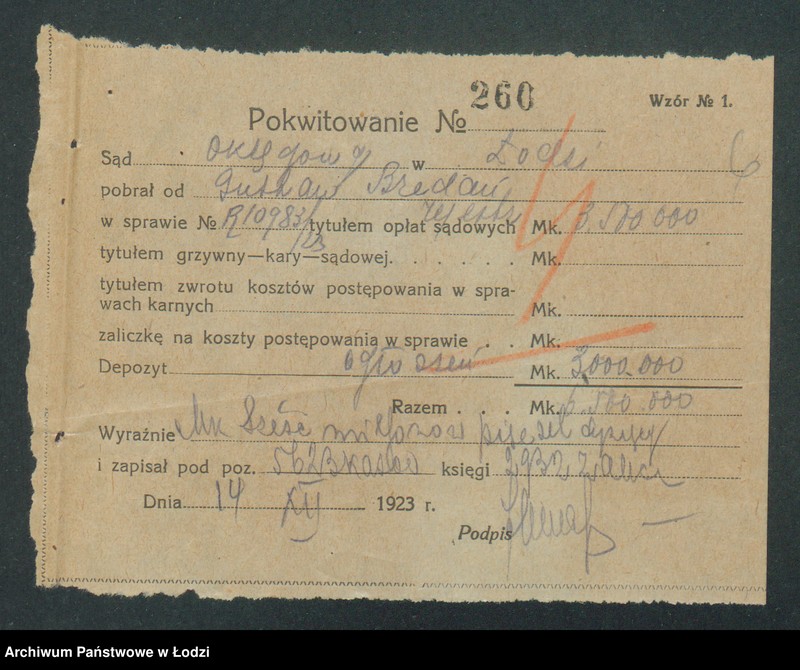 260
Wzór № 1.
Pokwitowanie №
Sąd Okręgowy w Łodzi
pobrał od Gustaw
w sprawie № R10983/23 tytułem opłat sądowych Mk. 3.500 000
tytułem grzywny—kary—sądowej. . . . . . Mk.
tytułem zwrotu kosztów postępowania w spra-
wach karnych Mk.
zaliczkę na koszty postępowania w sprawie . . Mk.
Depozyt ogłoszeń Mk. 3000.000
Razem . . . Mk. 6.500.000
Wyraźnie Mk sześć milionów pięćset tysięcy
i zapisał pod poz. 562 księgi
Dnia 14 XII 1923 r.
Podpis
Archiwum Państwowe w Łodzi